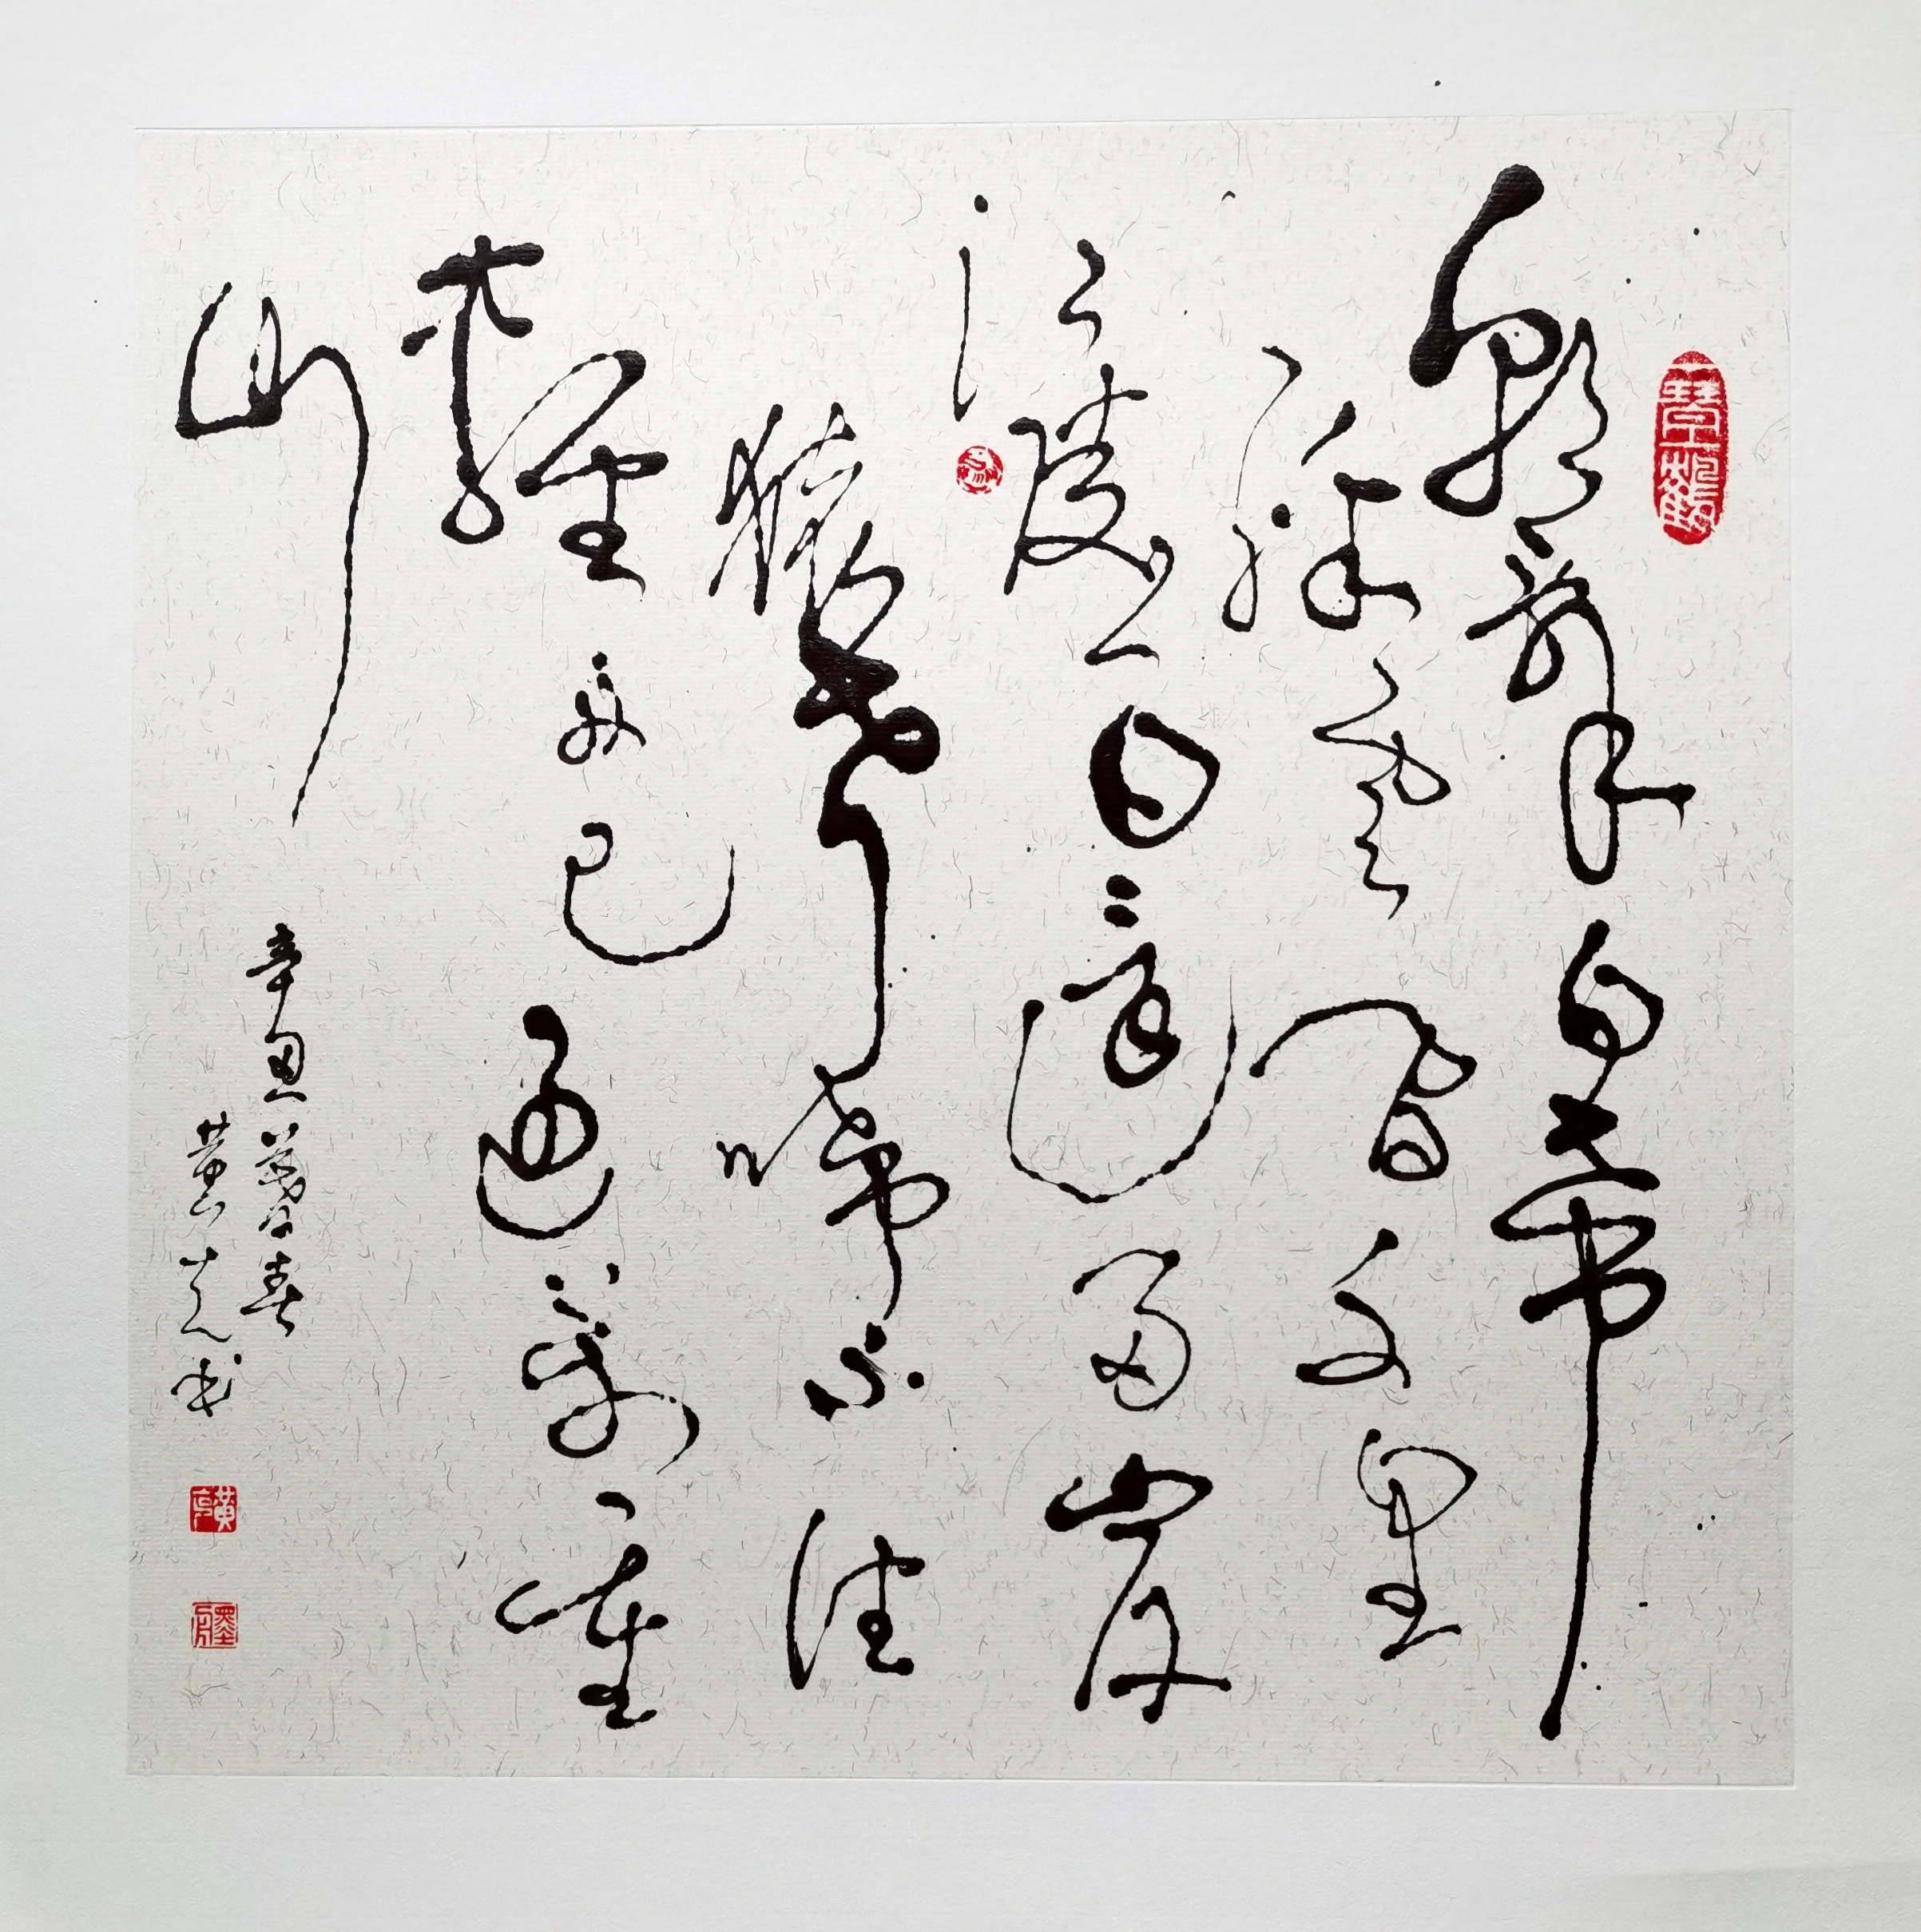 朝辭白帝
綵雲間千里
江陵一日還兩岸
猿聲啼不住
輕舟已過萬重
山
辛丑暮春
黄 书